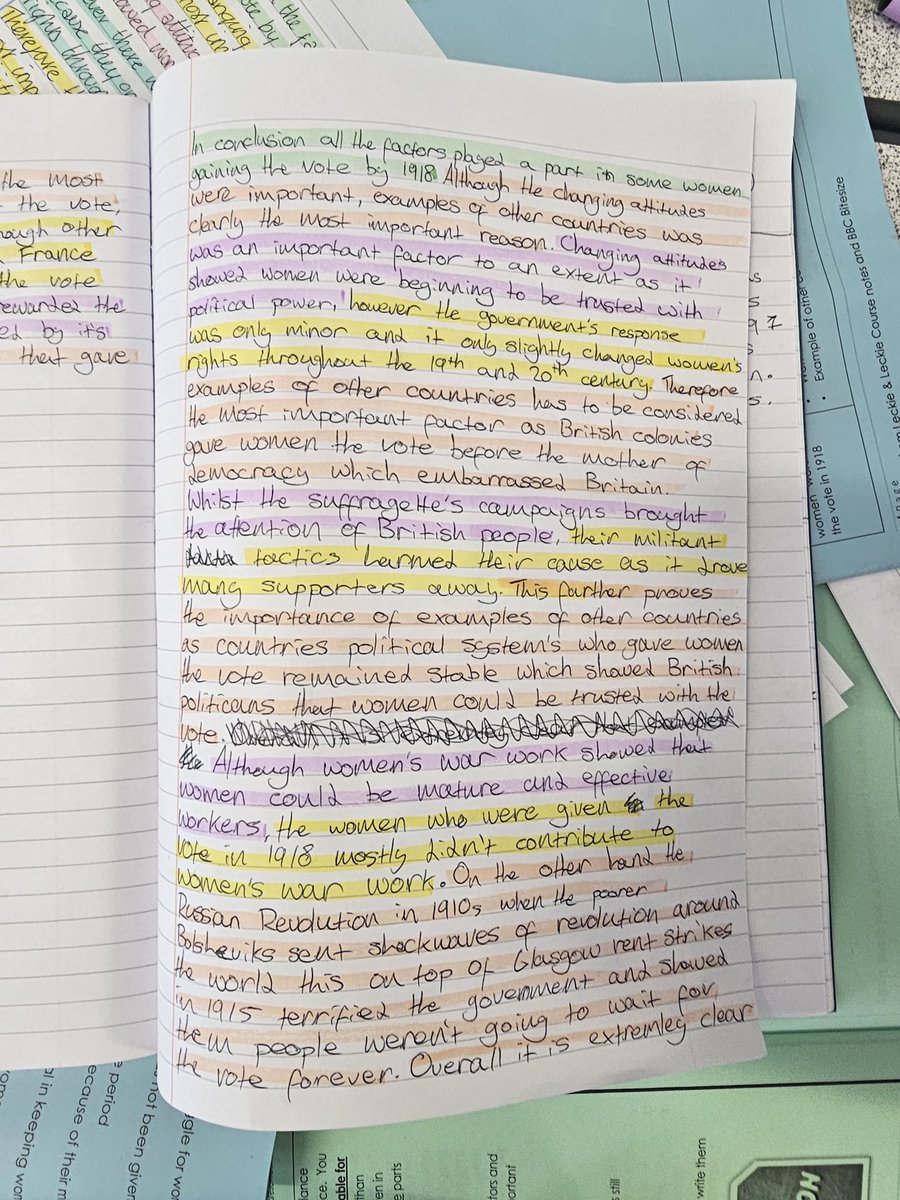 In conclusion all the factors played a part in some women
gaining the vote by 1918 Although the changing attitudes
were important, examples of other countries was
clearly the most important reason. Changing attitudes
was an important factor to an extent as it
showed women were beginning to be trusted with
political power, however the government's response
was only minor and it only slightly changed women's
rights throughout the 19th and 20th century. Therefore
examples of other countries has to be considered
the most important factor as British colonies
gave women the vote before the mother of
democracy which embarrassed Britain.
Whilst the suffragette's campaigns brought
the attention of British people, their militant
tactics harmed their cause as it drove
many supporters away. This further proves
the importance of examples of other countries
as countries political system's who gave women
the vote remained stable which showed British
politicans that women could be trusted with the
vote.
Although women's war work showed that
women could be mature and effective
workers, the women who were given the
vote in 1918 mostly didn't contribute to
women's war work. On the other hand the
Russian Revolution in 1910s when the poorer
Bolsheviks sent shockwaves of revolution around
the world this on top of Glasgow rent strikes
in 1915 terrified the government and showed
them people weren't going to wait for
the vote forever. Overall it is extremley clear
the most
the vote,
other
France
the vote
rewarded the
ed by it's
that gave
Example of others
women
the vote in 1918
Leckie & Leckie Course notes and BBC Bitesize
period
because of their m
not been given
al in keeping wom
ce. You
able for
than
en in
e parts
tors and
portant
still
write them